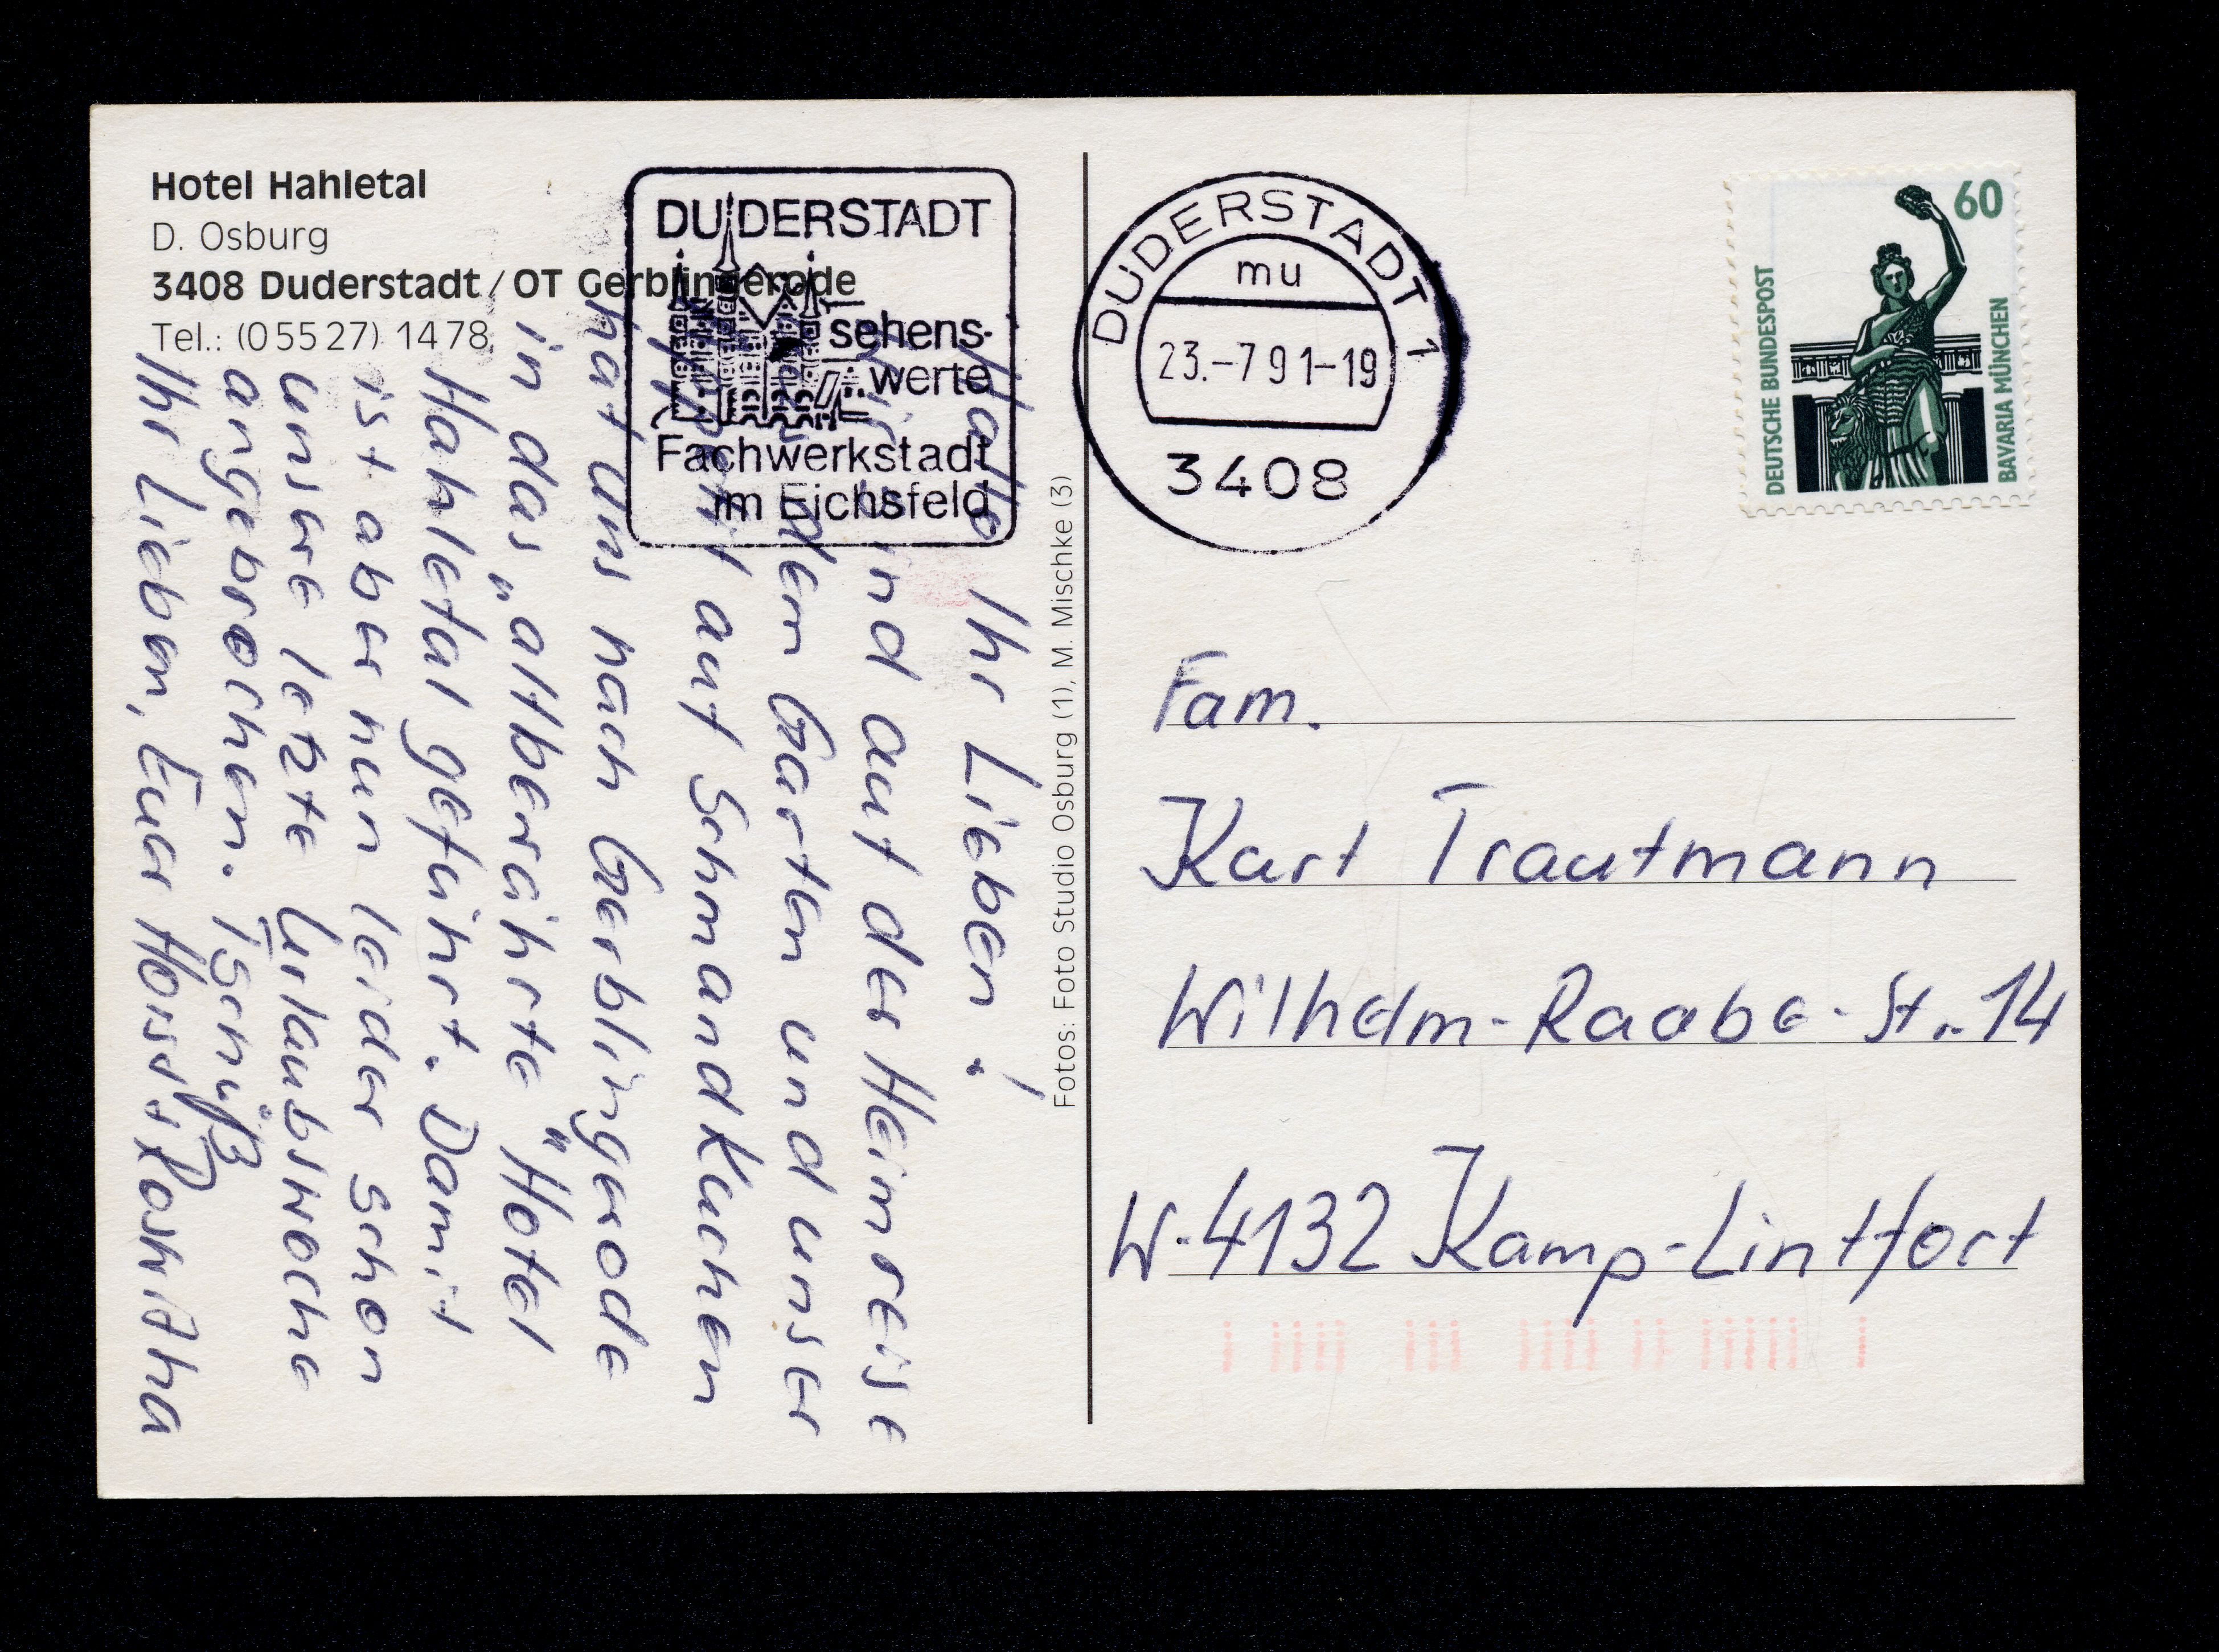 Hotel Hahletal
D. Osburg
3408 Duderstadt / OT Gerblingerode
Tel.: (0 55 27) 14 78
DUDERSTADT
sehens-
werte
Fachwerkstadt
im Eichsfeld
DUDERSTADT 1
mu
23.-7 91-19
3408
60
DEUTSCHE BUNDESPOST
BAVARIA MÜNCHEN
Hallo Ihr Lieben!
Wir sind auf der Heimreise
dem Garten und unser
auf Schmandkuchen
hat uns nach Gerblingerode
in das „altberührte" Hotel
Hahletal geführt. Damit
ist aber nun leider schon
unsere letzte Urlaubswoche
angebrochen. Tschüß
Ihr Lieben, Euer Horst + Roswitha
Fotos: Foto Studio Osburg (1), M. Mischke (3)
Fam.
Kurt Trautmann
Wilhelm-Raabe-Str. 14
W-4132 Kamp-Lintfort